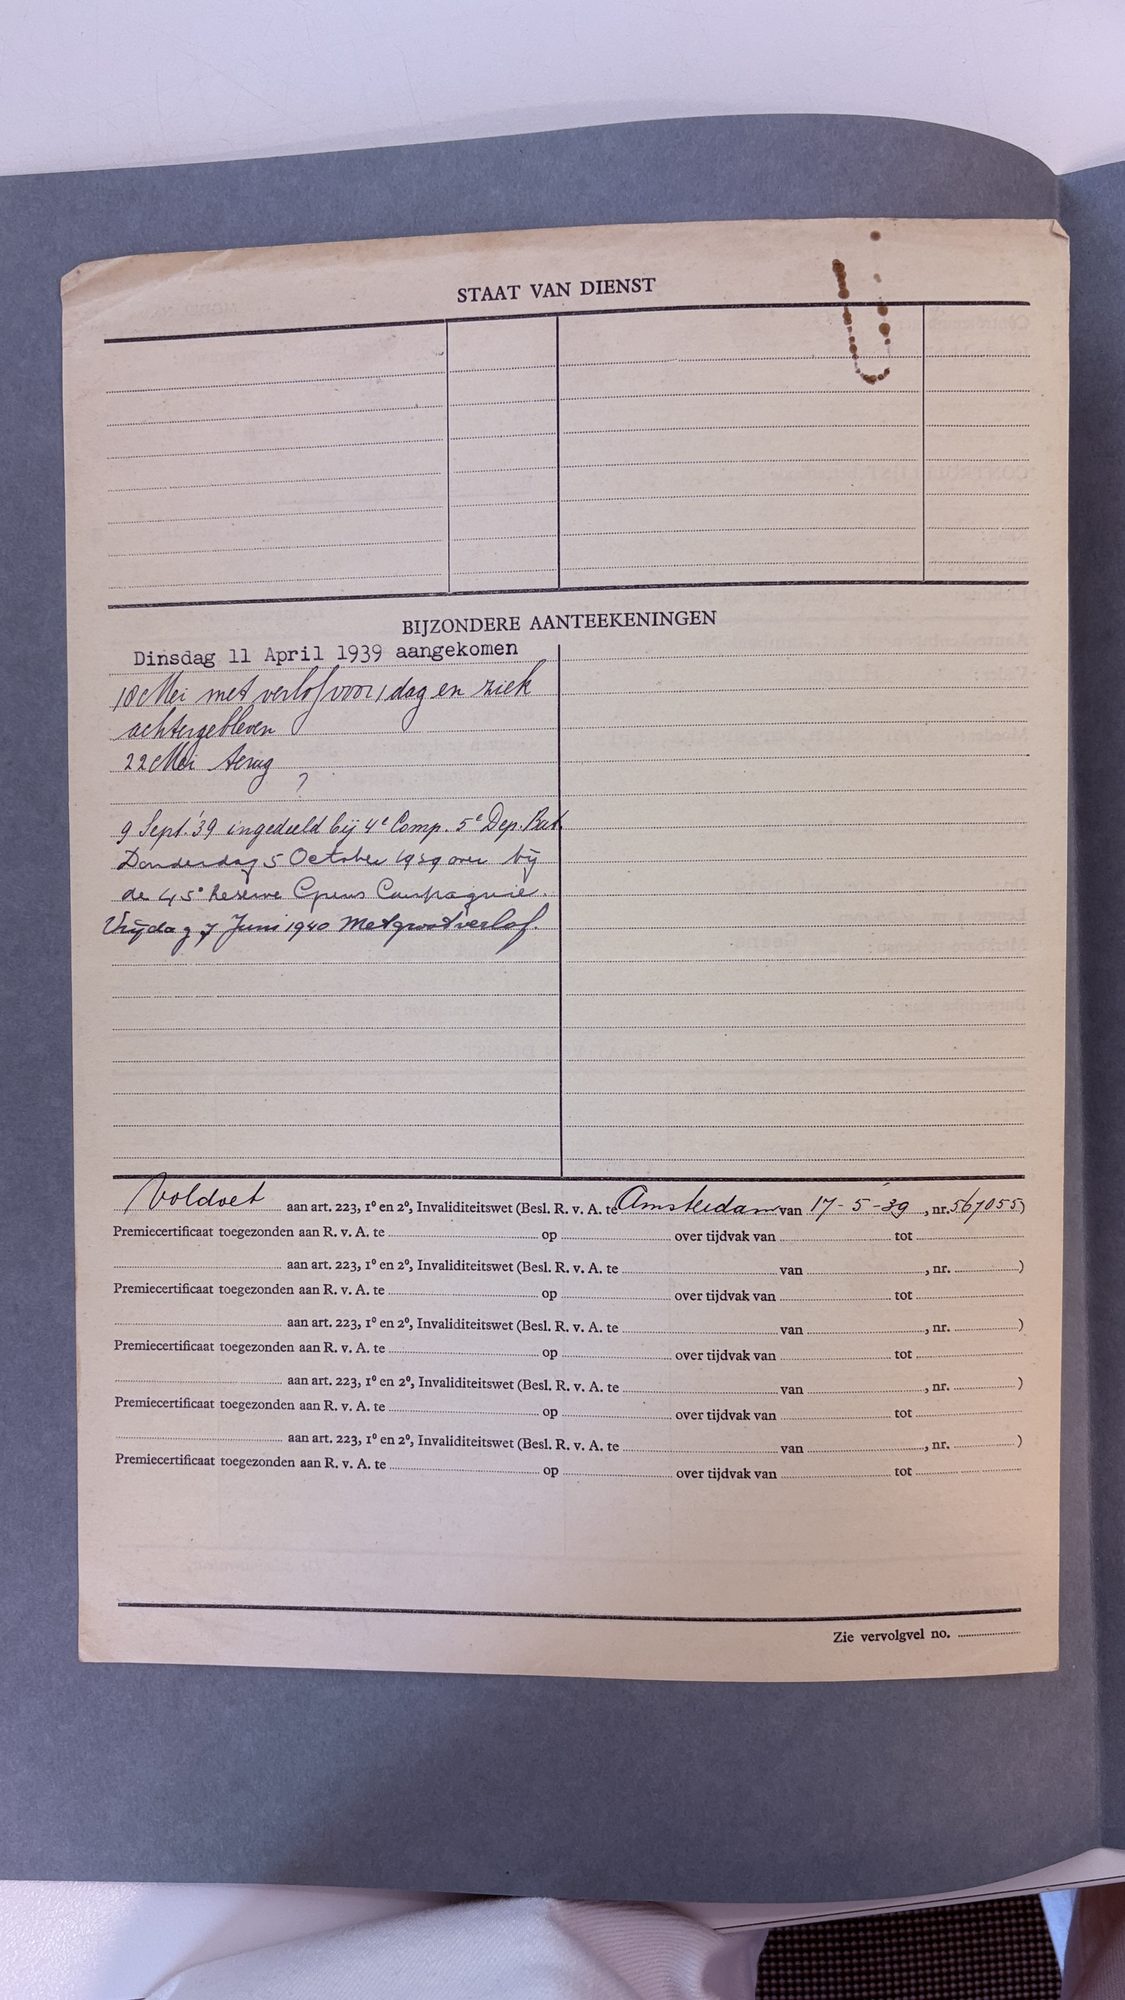 STAAT VAN DIENST
BIJZONDERE AANTEEKENINGEN
Dinsdag 11 April 1939 aangekomen
18 Mei met verlof voor 1 dag en ziek
achtergebleven
22 Mei terug
?
9 Sept. '39 ingedeeld bij 4e Comp. 5e Dep. Bat.
Donderdag 5 October 1939 over bij
de 45e Reserve Grens Compagnie.
Vrijdag 7 Juni 1940 Met groot verlof.
Voldoet aan art. 223, 1º en 2º, Invaliditeitswet (Besl. R. v. A. te Amsterdam van 17-5-'39, nr. 567055)
Premiecertificaat toegezonden aan R. v. A. te op over tijdvak van tot
aan art. 223, 1º en 2º, Invaliditeitswet (Besl. R. v. A. te van , nr. )
Premiecertificaat toegezonden aan R. v. A. te op over tijdvak van tot
aan art. 223, 1º en 2º, Invaliditeitswet (Besl. R. v. A. te van , nr. )
Premiecertificaat toegezonden aan R. v. A. te op over tijdvak van tot
aan art. 223, 1º en 2º, Invaliditeitswet (Besl. R. v. A. te van , nr. )
Premiecertificaat toegezonden aan R. v. A. te op over tijdvak van tot
aan art. 223, 1º en 2º, Invaliditeitswet (Besl. R. v. A. te van , nr. )
Premiecertificaat toegezonden aan R. v. A. te op over tijdvak van tot
Zie vervolgvel no.